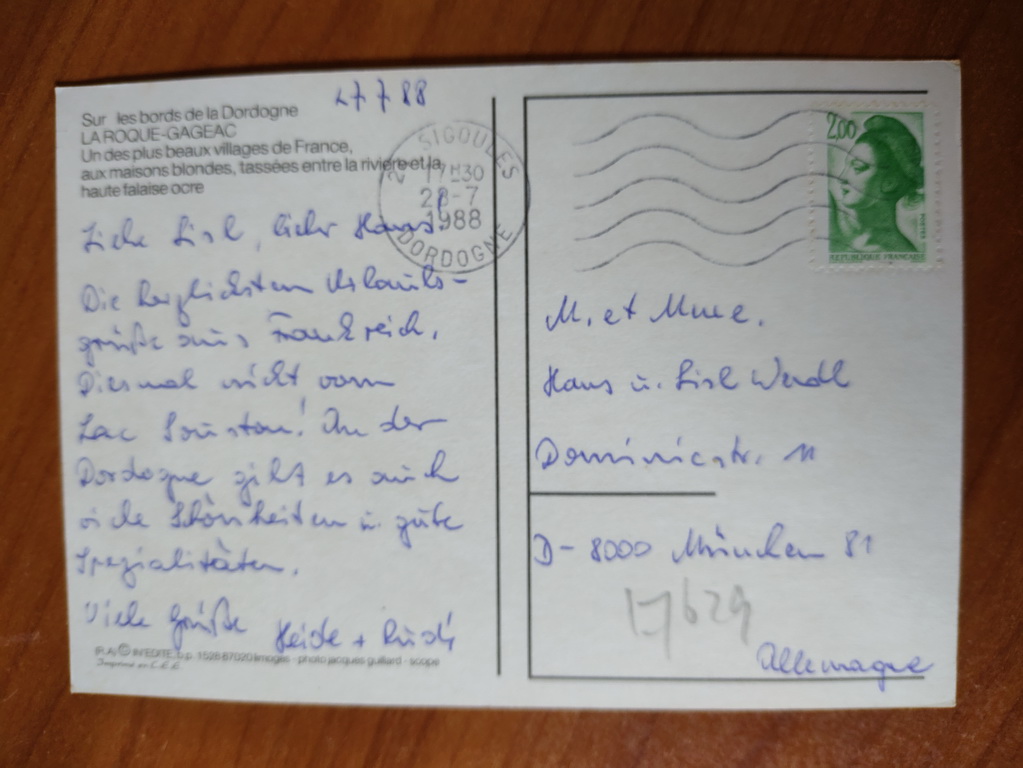 27 7 88
Sur les bords de la Dordogne
LA ROQUE-GAGEAC
Un des plus beaux villages de France,
aux maisons blondes, tassées entre la rivière et la
haute falaise ocre
SIGOULES
17H30
28-7
1988
DORDOGNE
2,00
REPUBLIQUE FRANÇAISE
Liebe Lisl, lieber Hans!
Die herzlichsten Urlaubs-
grüße aus Frankreich.
Diesmal nicht vom
Lac Souston! An der
Dordogne gibt es auch
viele Schönheiten u. gute
Spezialitäten.
Viele Grüße Heide + Rudi
INEDITE, b.p. 1526 87020 limoges - photo jacques guillard - scope
Imprimé en C.E.E.
M. et Mme.
Hans u. Lisl Wendl
Dominicstr. 11
D-8000 München 81
17629
Allemagne